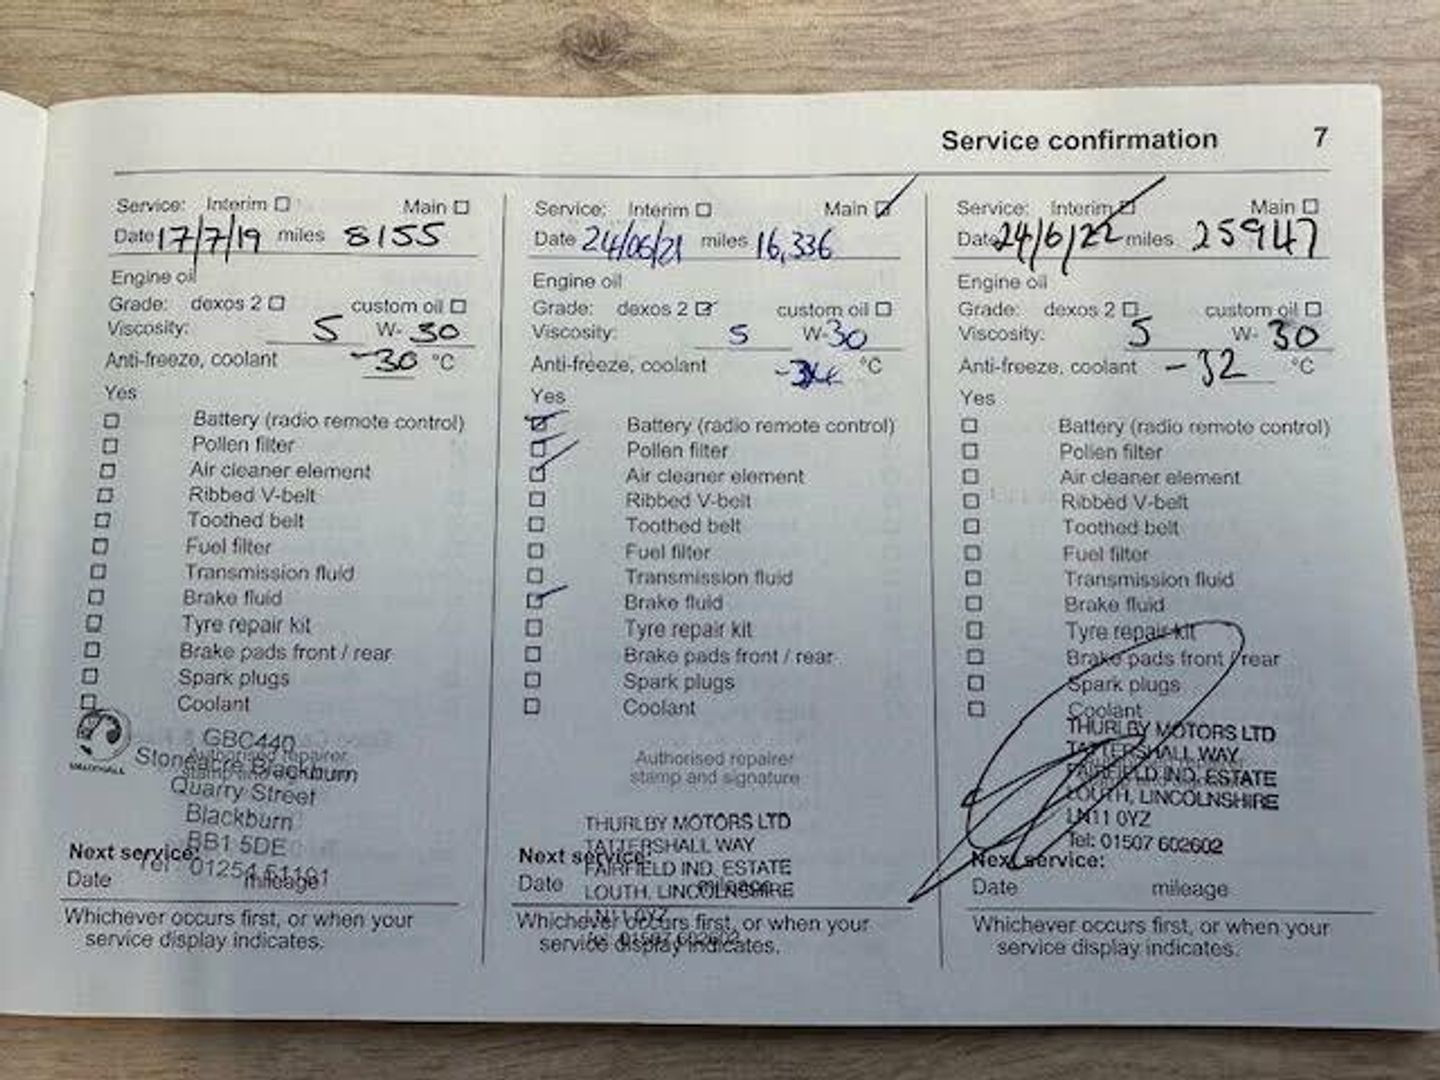 Service confirmation 7
Service: Interim Main
Date 17/7/19 miles 8155
Engine oil
Grade: dexos 2 custom oil
Viscosity: 5 W- 30
Anti-freeze, coolant -30 °C
Yes
Battery (radio remote control)
Pollen filter
Air cleaner element
Ribbed V-belt
Toothed belt
Fuel filter
Transmission fluid
Brake fluid
Tyre repair kit
Brake pads front / rear
Spark plugs
Coolant
GBC440
Authorised repairer
Blackburn
stamp and
Quarry Street
Blackburn
BB1 5DE
Next service:
Tel 01254
Date mileage
Whichever occurs first, or when your
service display indicates.
Service: Interim Main
Date 24/06/21 miles 16,336
Engine oil
Grade: dexos 2 custom oil
Viscosity: 5 W- 30
Anti-freeze, coolant °C
Yes
Battery (radio remote control)
Pollen filter
Air cleaner element
Ribbed V-belt
Toothed belt
Fuel filter
Transmission fluid
Brake fluid
Tyre repair kit
Brake pads front / rear
Spark plugs
Coolant
Authorised repairer
stamp and signature
THURLBY MOTORS LTD
TATTERSHALL WAY
Next service:
FAIRFIELD IND. ESTATE
Date mileage
LOUTH, LINCOLNSHIRE
LN11 0YZ
Whichever occurs first, or when your
service display indicates.
Service: Interim Main
Date 24/6/22 miles 25947
Engine oil
Grade: dexos 2 custom oil
Viscosity: 5 W- 30
Anti-freeze, coolant -32 °C
Yes
Battery (radio remote control)
Pollen filter
Air cleaner element
Ribbed V-belt
Toothed belt
Fuel filter
Transmission fluid
Brake fluid
Tyre repair kit
Brake pads front / rear
Spark plugs
Coolant
THURLBY MOTORS LTD
TATTERSHALL WAY
FAIRFIELD IND. ESTATE
LOUTH, LINCOLNSHIRE
LN11 0YZ
Tel: 01507 602602
Next service:
Date mileage
Whichever occurs first, or when your
service display indicates.